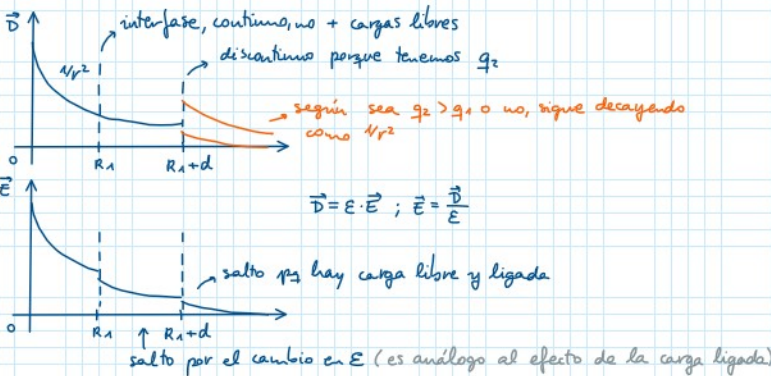 D⃗
interfase, continuo, no + cargas libres
discontinuo porque tenemos q₂
1/r²
según sea q₂ > q₁ o no, sigue decayendo
como 1/r²
0 R₁ R₁+d
E⃗
D⃗ = ε·E⃗ ; E⃗ = D⃗/ε
salto pq hay carga libre y ligada
0 R₁ R₁+d
salto por el cambio en ε (es análogo al efecto de la carga ligada)